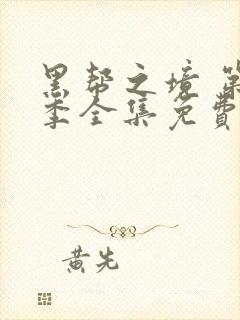 黑帮之境 第
季全集免费
黄先